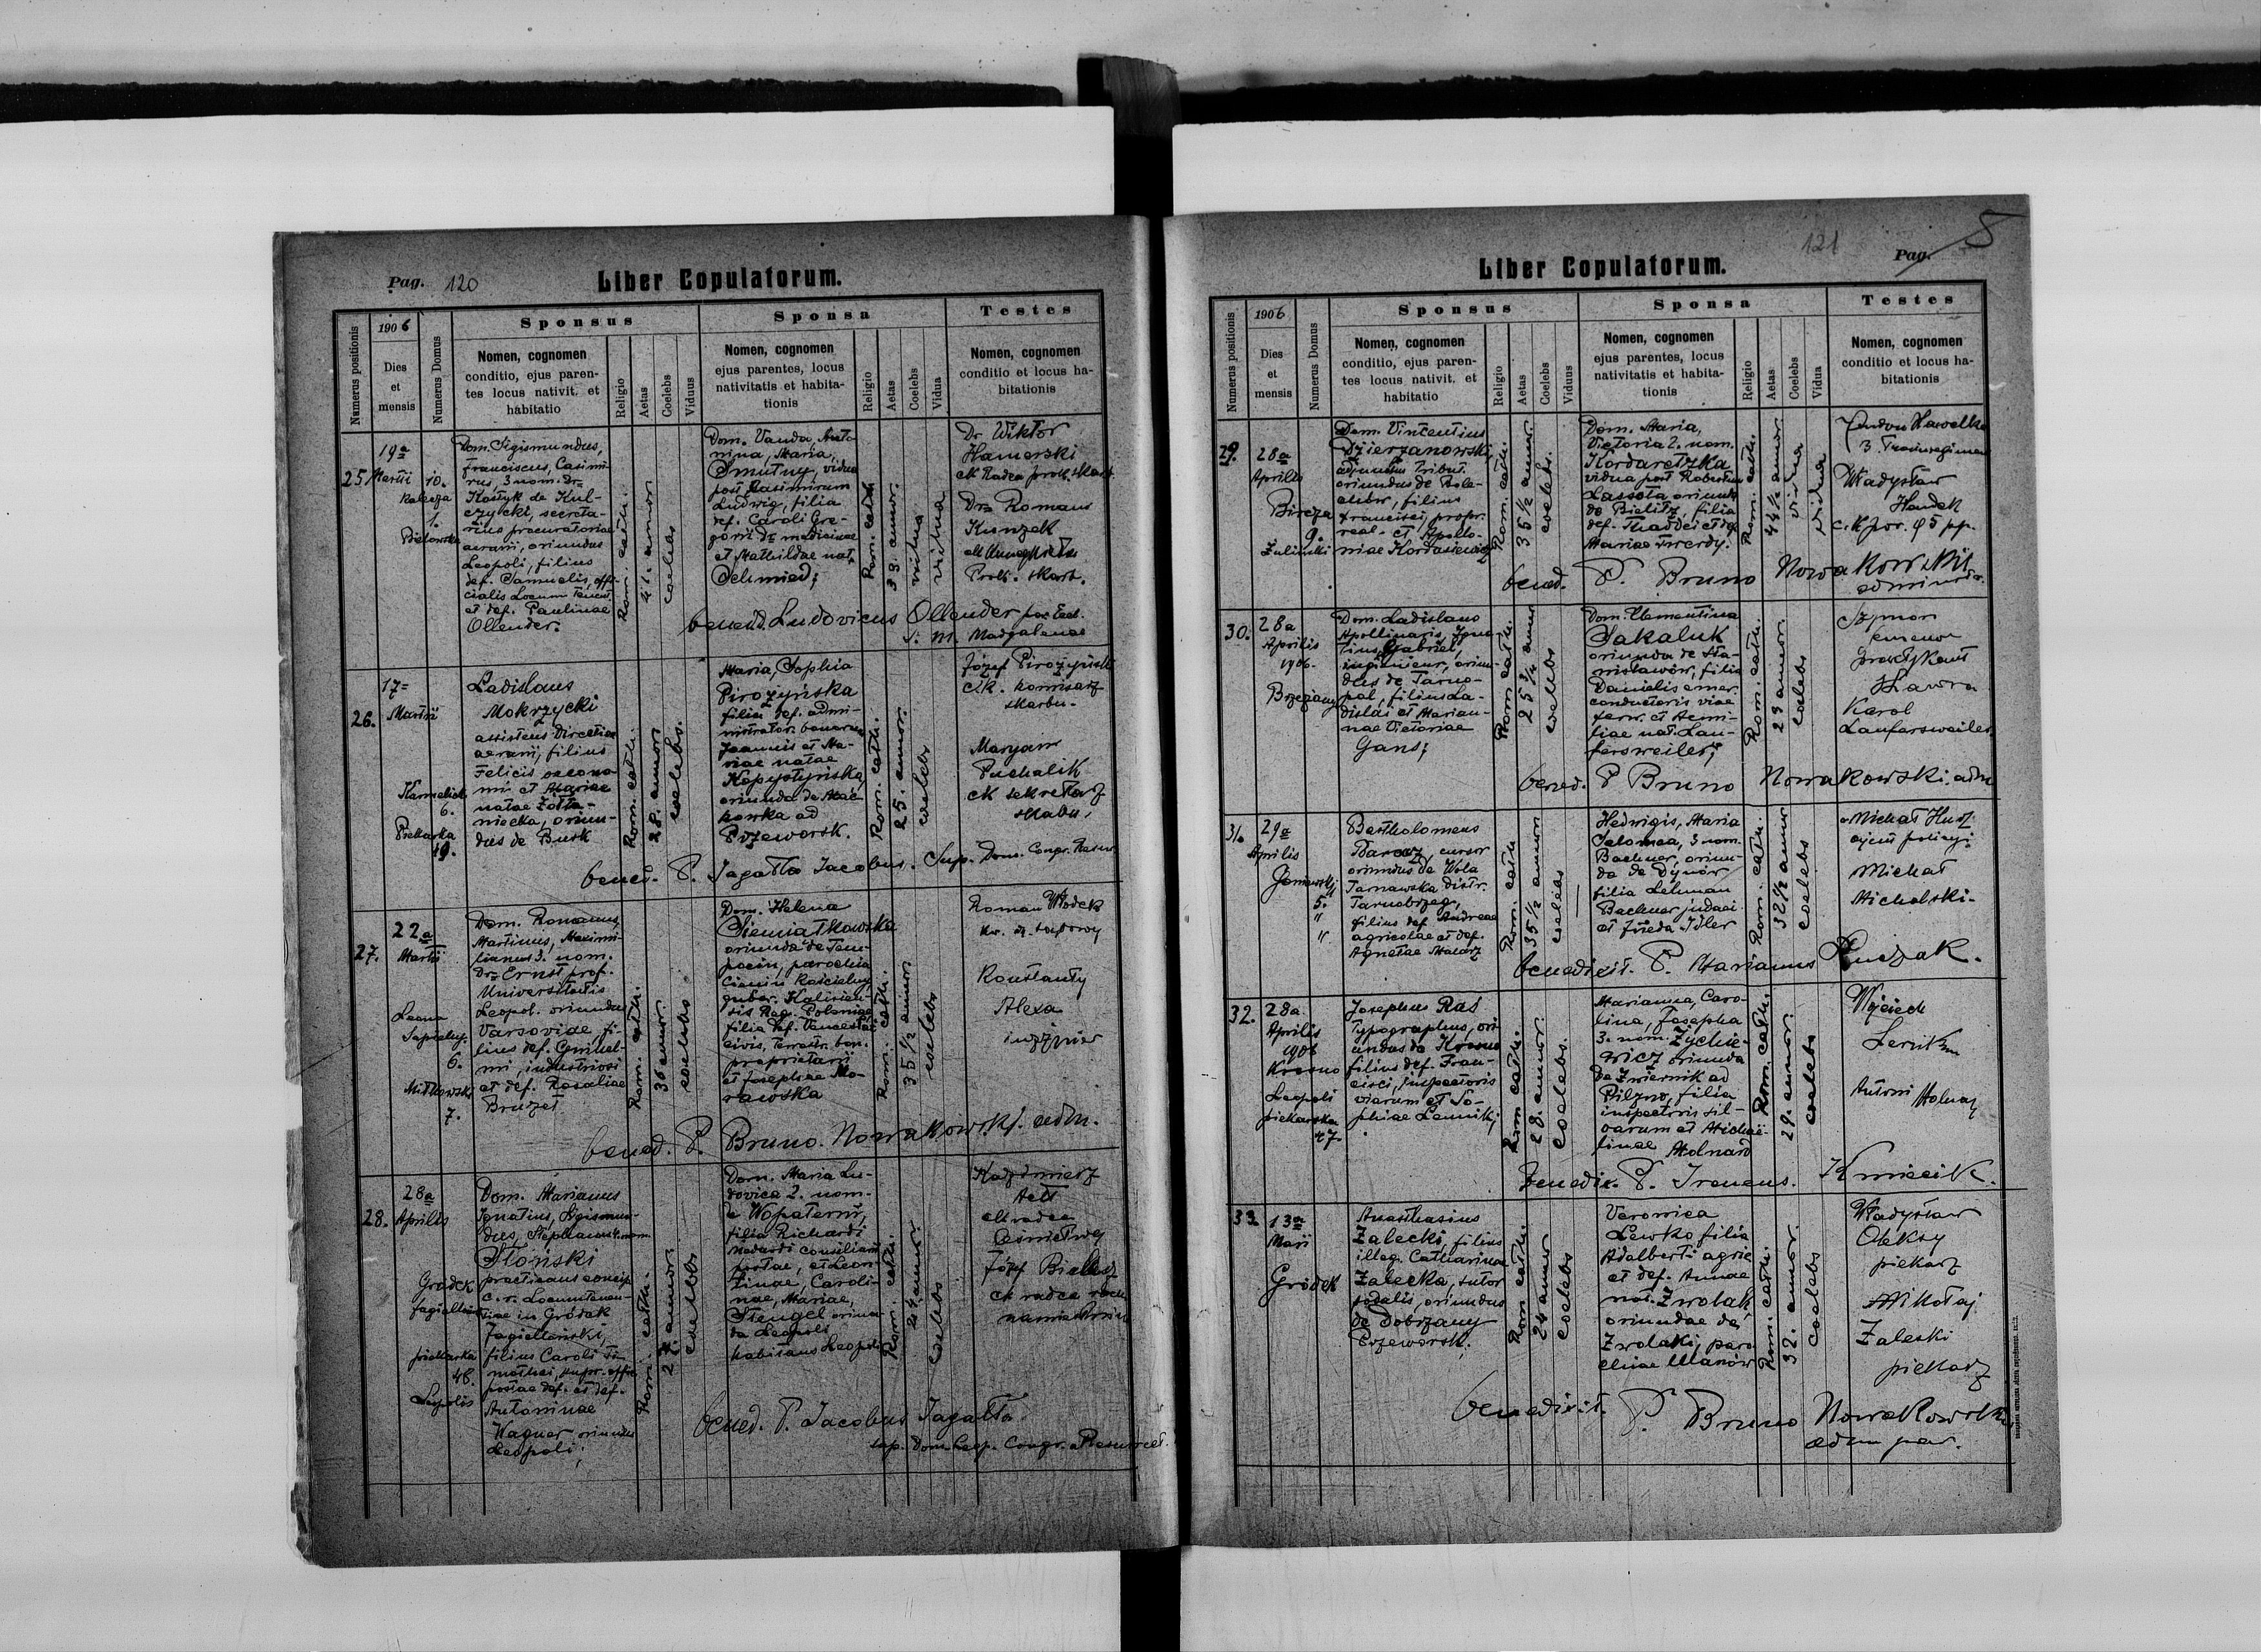 Pag. 120
Liber Copulatorum.
Numerus positionis
1906
Dies
et
mensis
Numerus Domus
Sponsus
Nomen, cognomen
conditio, ejus paren-
tes locus nativit. et
habitatio
Religio
Aetas
Coelebs
Viduus
Sponsa
Nomen, cognomen
ejus parentes, locus
nativitatis et habita-
tionis
Religio
Aetas
Coelebs
Vidua
Testes
Nomen, cognomen
conditio et locus ha-
bitationis
25
19a
Martii
10.
Kalecza
1.
Dom. Sigismundus,
Franciscus, Casimi-
rus, 3 nom. Dr.
Kostyk de Kul-
czycki, secreta-
rius procuratoriae
aerarii, oriundus
Leopoli, filius
def. Samuelis, offi-
cialis Locum Tenent.
et def. Paulinae
Ollender.
Rom. cath.
41. annor.
coelebs
Dom. Vanda, Anto-
nina, Maria,
Smutny, vidua
post Casimirum
Ludwig, filia
def. Caroli Gre-
gorii Dr medicinae
et Mathildae nat.
Schmied;
Rom. cath.
33. annor.
vidua
vidua
Dr Wiktor
Hamerski
ck Radca prok. skarb.
Dr Roman
Kunzek
Prok. skarb.
bened. Ludovicus Ollender par. Eccl.
S. M. Magdalenae
26.
17=
Martii
6.
Piekarska
19.
Ladislaus
Mokrzycki
assistens Directiae
aerarii, filius
Felicis oecono-
mi et Mariae
natae Żółta-
niecka, oriun-
dus de Busk
Rom. cath.
28. annor.
coelebs.
Maria, Sophia
Pirożyńska
filia def. admi-
nistrator. bonorum
Joannis et Ma-
riae natae
Kopystyńska
oriunda de Mać-
kowka ad
Przeworsk.
Rom. cath.
25. annor.
coelebs
Józef Pirożyński
c.k. komisarz
skarbu.
Maryan
Puchalik
ck sekretarz
skarbu,
bened. P. Jagałła Jacobus. Sup. Dom. Congr. Resurr.
27.
22a
Martii
Leona
Sapiehy.
6.
Miłkowski
7.
Dom. Romanus,
Martinus, Maximi-
lianus 3. nom.
Dr. Ernst prof.
Universitatis
Leopol. oriundus
Varsoviae, fi-
lius def. Guiliel-
mi, industriosi
et def. Rosaliae
Bruzet
Rom. cath.
36 annor.
coelebs
Dom. Helena
Sieniatkowska
oriunda de Tam-
parochia
Cienin Kościelny
guber. Kalisien-
sis Reg. Poloniae
filia def. Venceslai
civis, terrestr. bon.
proprietarii
et Josephae Mo-
rawska
Rom. cath.
35 1/2 annor
coelebs
Roman Włodek
Konstanty
Alexa
inżynier
bened. P. Bruno Nowakowski adm.
28.
28a
Aprilis
Gródek
Jagielloński
piekarska
46.
Leopolis
Dom. Marianus
Ignatius, Sigismun-
dus, Stephanus 4. nom.
Słoński
practicans concip.
c. r. Locumtenen-
tiae in Gródek
Jagielloński,
filius Caroli Ti-
mothei, supr. offic.
postae def. et def.
Antoninae
Wagner oriundus
Leopoli;
Rom. cath.
27 annor
coelebs
Dom. Maria Lu-
dovica 2. nom.
de Wopaterni,
filia Richardi
Medardi consiliarii
postae, et Leon-
tinae, Caroli-
nae, Mariae,
Stengel oriun-
da Leopoli
habitans Leopoli
Rom. cath.
24 annor
coelebs
Kazimierz
ck radca
Józef
ck radca
bened. P. Jacobus Jagałła
sup. Dom. Leop. Congr. a Resurrect.
121
Pag. 5
Liber Copulatorum.
Numerus positionis
1906
Dies
et
mensis
Numerus Domus
Sponsus
Nomen, cognomen
conditio, ejus paren-
tes locus nativit. et
habitatio
Religio
Aetas
Coelebs
Viduus
Sponsa
Nomen, cognomen
ejus parentes, locus
nativitatis et habita-
tionis
Religio
Aetas
Coelebs
Vidua
Testes
Nomen, cognomen
conditio et locus ha-
bitationis
29.
28a
Aprilis
Bircza
9.
Zulinski
Dom. Vincentius
Dzierżanowski,
adjunctus tribut.
oriundus de Bole-
chow, filius
Francisci, propr.
real. et Apollo-
niae Kordasiewicz
Rom. cath.
35 1/2 annor.
coelebs.
Dom. Maria,
Victoria 2. nom.
Kordaretzka
vidua post Robertum
Lassota oriunda
de Bielitz, filia
def. Thaddei et def.
Mariae Twerdy.
Rom. cath.
44 1/2 annor
vidua
vidua
Władysław
c. k. por. 95 pp.
bened. P. Bruno Nowakowski
administr.
30.
28a
Aprilis
1906.
Brzeżany
Dom. Ladislaus
Apollinaris, Igna-
tius, Gabriel,
ingenieur, oriun-
dus de Tarno-
pol, filius La-
dislai et Marian-
nae Victoriae
Gans;
Rom. cath.
25 3/4 annor
coelebs
Dom. Clementina
Sakaluk
oriunda de Sta-
nisławów, filia
Danielis emer.
conductoris viae
ferr. et Aemi-
liae nat. Lau-
fersweiler;
Rom. cath.
23 annor.
coelebs
Szymon
Karol
Laufersweiler
bened. P Bruno Nowakowski adm
31.
29a
Aprilis
5.
"
"
Bartholomeus
Baracz, cursor
oriundus de Wola
Tarnowska distr.
Tarnobrzeg,
filius def. Andreae
agricolae et def.
Agnetae Malarz
Rom. cath
35 1/2 annorum
coelebs
Hedwigis, Maria
Salomea, 3 nom.
Bachner, oriun-
da de Dynów
filia Lehman
Bachner judaei
et Freda Idler
Rom. cath.
32 1/2 annor
coelebs
Michał
ajent policyj.
Michał
Michalski
benedixit. P. Marianus Puczak.
32.
28a
Aprilis
1906
Krosno
Leopoli
piekarska
47.
Josephus Raś
Typographus, ori-
undus de Krosno
filius def. Fran-
cisci, inspectoris
viarum et So-
phiae Lewnicki
Rom cath.
28. annor.
coelebs.
Marianna, Caro-
lina, Josepha
3. nom. Żychie-
wicz oriunda
de Zwiernik ad
Pilzno, filia
inspectoris sil-
varum et Michae-
linae Molnard
Rom. cath.
29. annor.
coelebs
Wojciech
Antoni
benedix. P. Ireneus. Kmiecik.
33.
13a
Maii
Gródek
Anasthasius
Zalecki, filius
illeg. Catharina
Zalecka, sutor
sodalis, oriundus
de Dobrzany
Przeworsk.
Rom. cath.
24 annor
coelebs
Veronica
Lewko filia
Adalberti agric
et def. Annae
nat. Zwolak
oriundae de
Zwolaki, paro-
chiae Ulanów
Rom. cath.
32. annor.
coelebs
Władysław
Oleksy
piekarz
Mikołaj
Zaleski
piekarz
benedixit. P. Bruno Nowakowski
adm par.